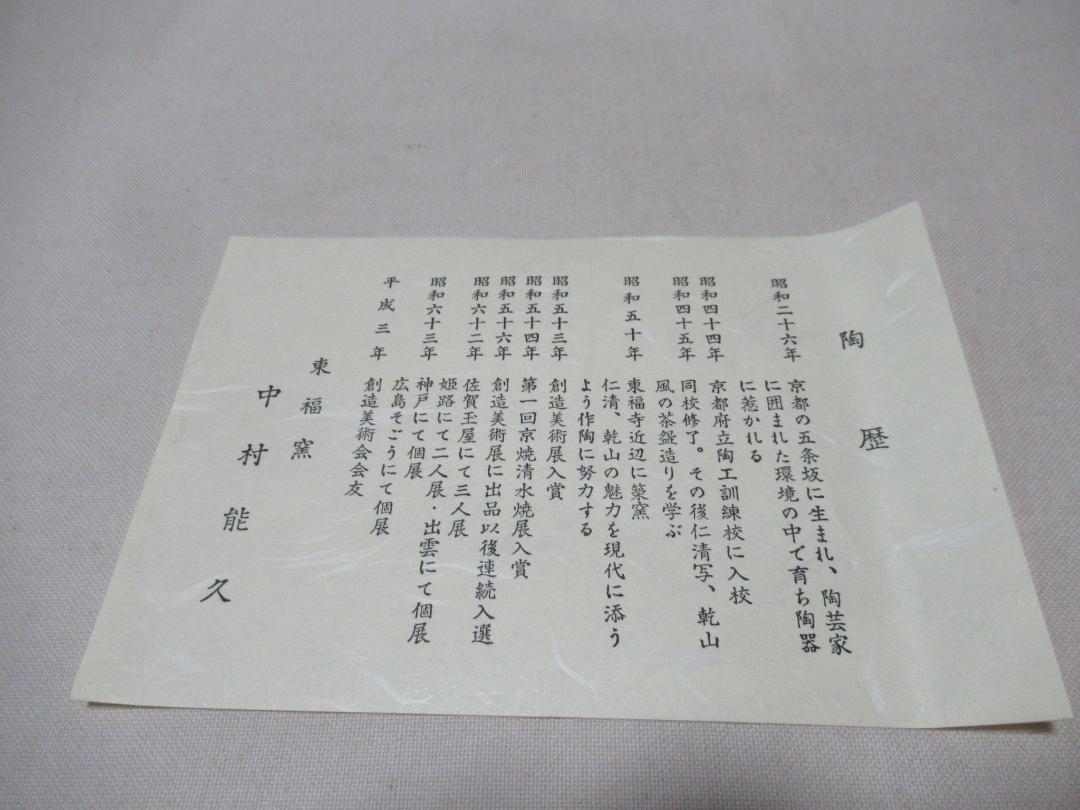 陶歴
昭和二十六年 京都の五条坂に生まれ、陶芸家
に囲まれた環境の中で育ち陶器
に惹かれる
昭和四十四年 京都府立陶工訓練校に入校
昭和四十五年 同校修了。その後仁清写、乾山
風の茶盌造りを学ぶ
昭和五十年 東福寺近辺に築窯
仁清、乾山の魅力を現代に添う
よう作陶に努力する
昭和五十三年 創造美術展入賞
昭和五十四年 第一回京焼清水焼展入賞
昭和五十六年 創造美術展に出品以後連続入選
昭和六十二年 佐賀玉屋にて三人展
姫路にて二人展・出雲にて個展
昭和六十三年 神戸にて個展
広島そごうにて個展
平成三年 創造美術会会友
東福窯
中村能久